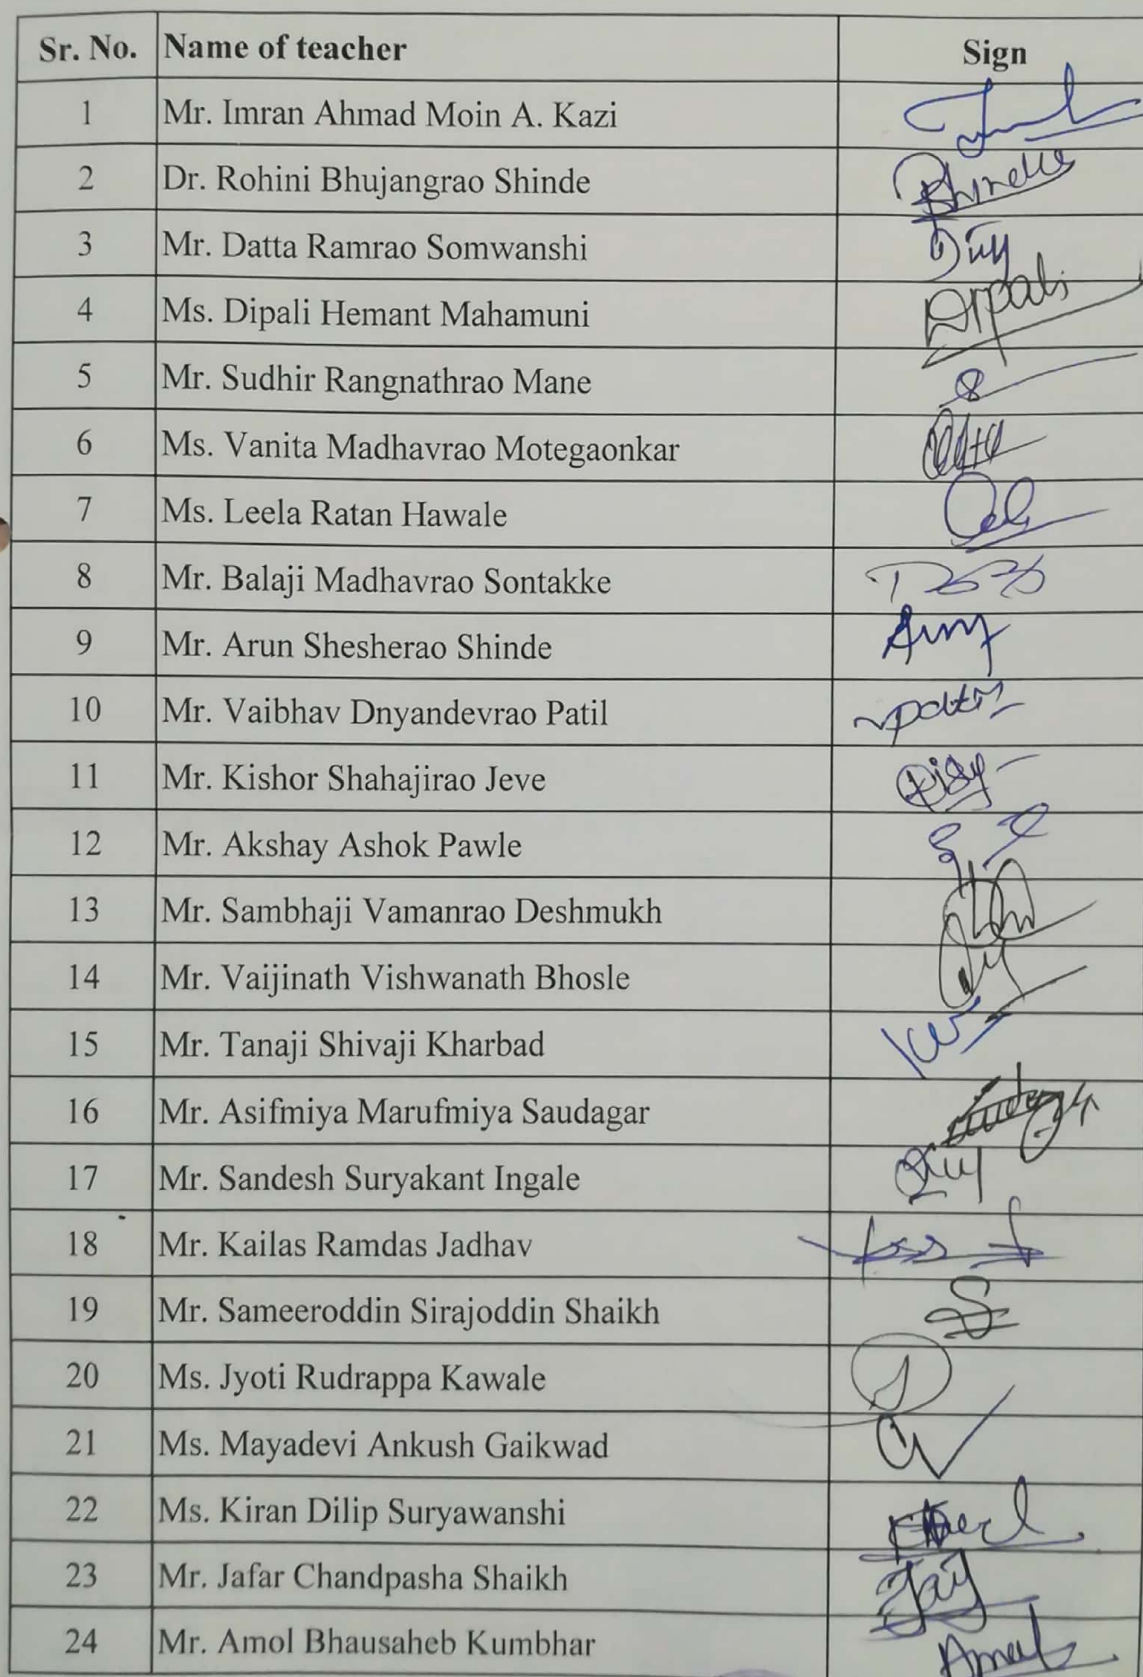 Sr. No. Name of teacher Sign
1 Mr. Imran Ahmad Moin A. Kazi
2 Dr. Rohini Bhujangrao Shinde
3 Mr. Datta Ramrao Somwanshi
4 Ms. Dipali Hemant Mahamuni Dipali
5 Mr. Sudhir Rangnathrao Mane
6 Ms. Vanita Madhavrao Motegaonkar
7 Ms. Leela Ratan Hawale
8 Mr. Balaji Madhavrao Sontakke
9 Mr. Arun Shesherao Shinde
10 Mr. Vaibhav Dnyandevrao Patil
11 Mr. Kishor Shahajirao Jeve
12 Mr. Akshay Ashok Pawle
13 Mr. Sambhaji Vamanrao Deshmukh
14 Mr. Vaijinath Vishwanath Bhosle
15 Mr. Tanaji Shivaji Kharbad
16 Mr. Asifmiya Marufmiya Saudagar
17 Mr. Sandesh Suryakant Ingale
18 Mr. Kailas Ramdas Jadhav
19 Mr. Sameeroddin Sirajoddin Shaikh
20 Ms. Jyoti Rudrappa Kawale
21 Ms. Mayadevi Ankush Gaikwad
22 Ms. Kiran Dilip Suryawanshi
23 Mr. Jafar Chandpasha Shaikh
24 Mr. Amol Bhausaheb Kumbhar